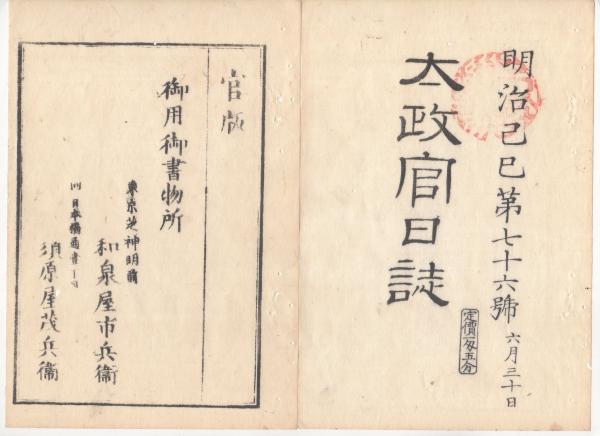 明治己巳第七十六號 六月三十日
太政官日誌
定價一匁五分
官版
御用御書物所
東京芝神明前
和泉屋市兵衞
同 日本橋通壹丁目
須原屋茂兵衞